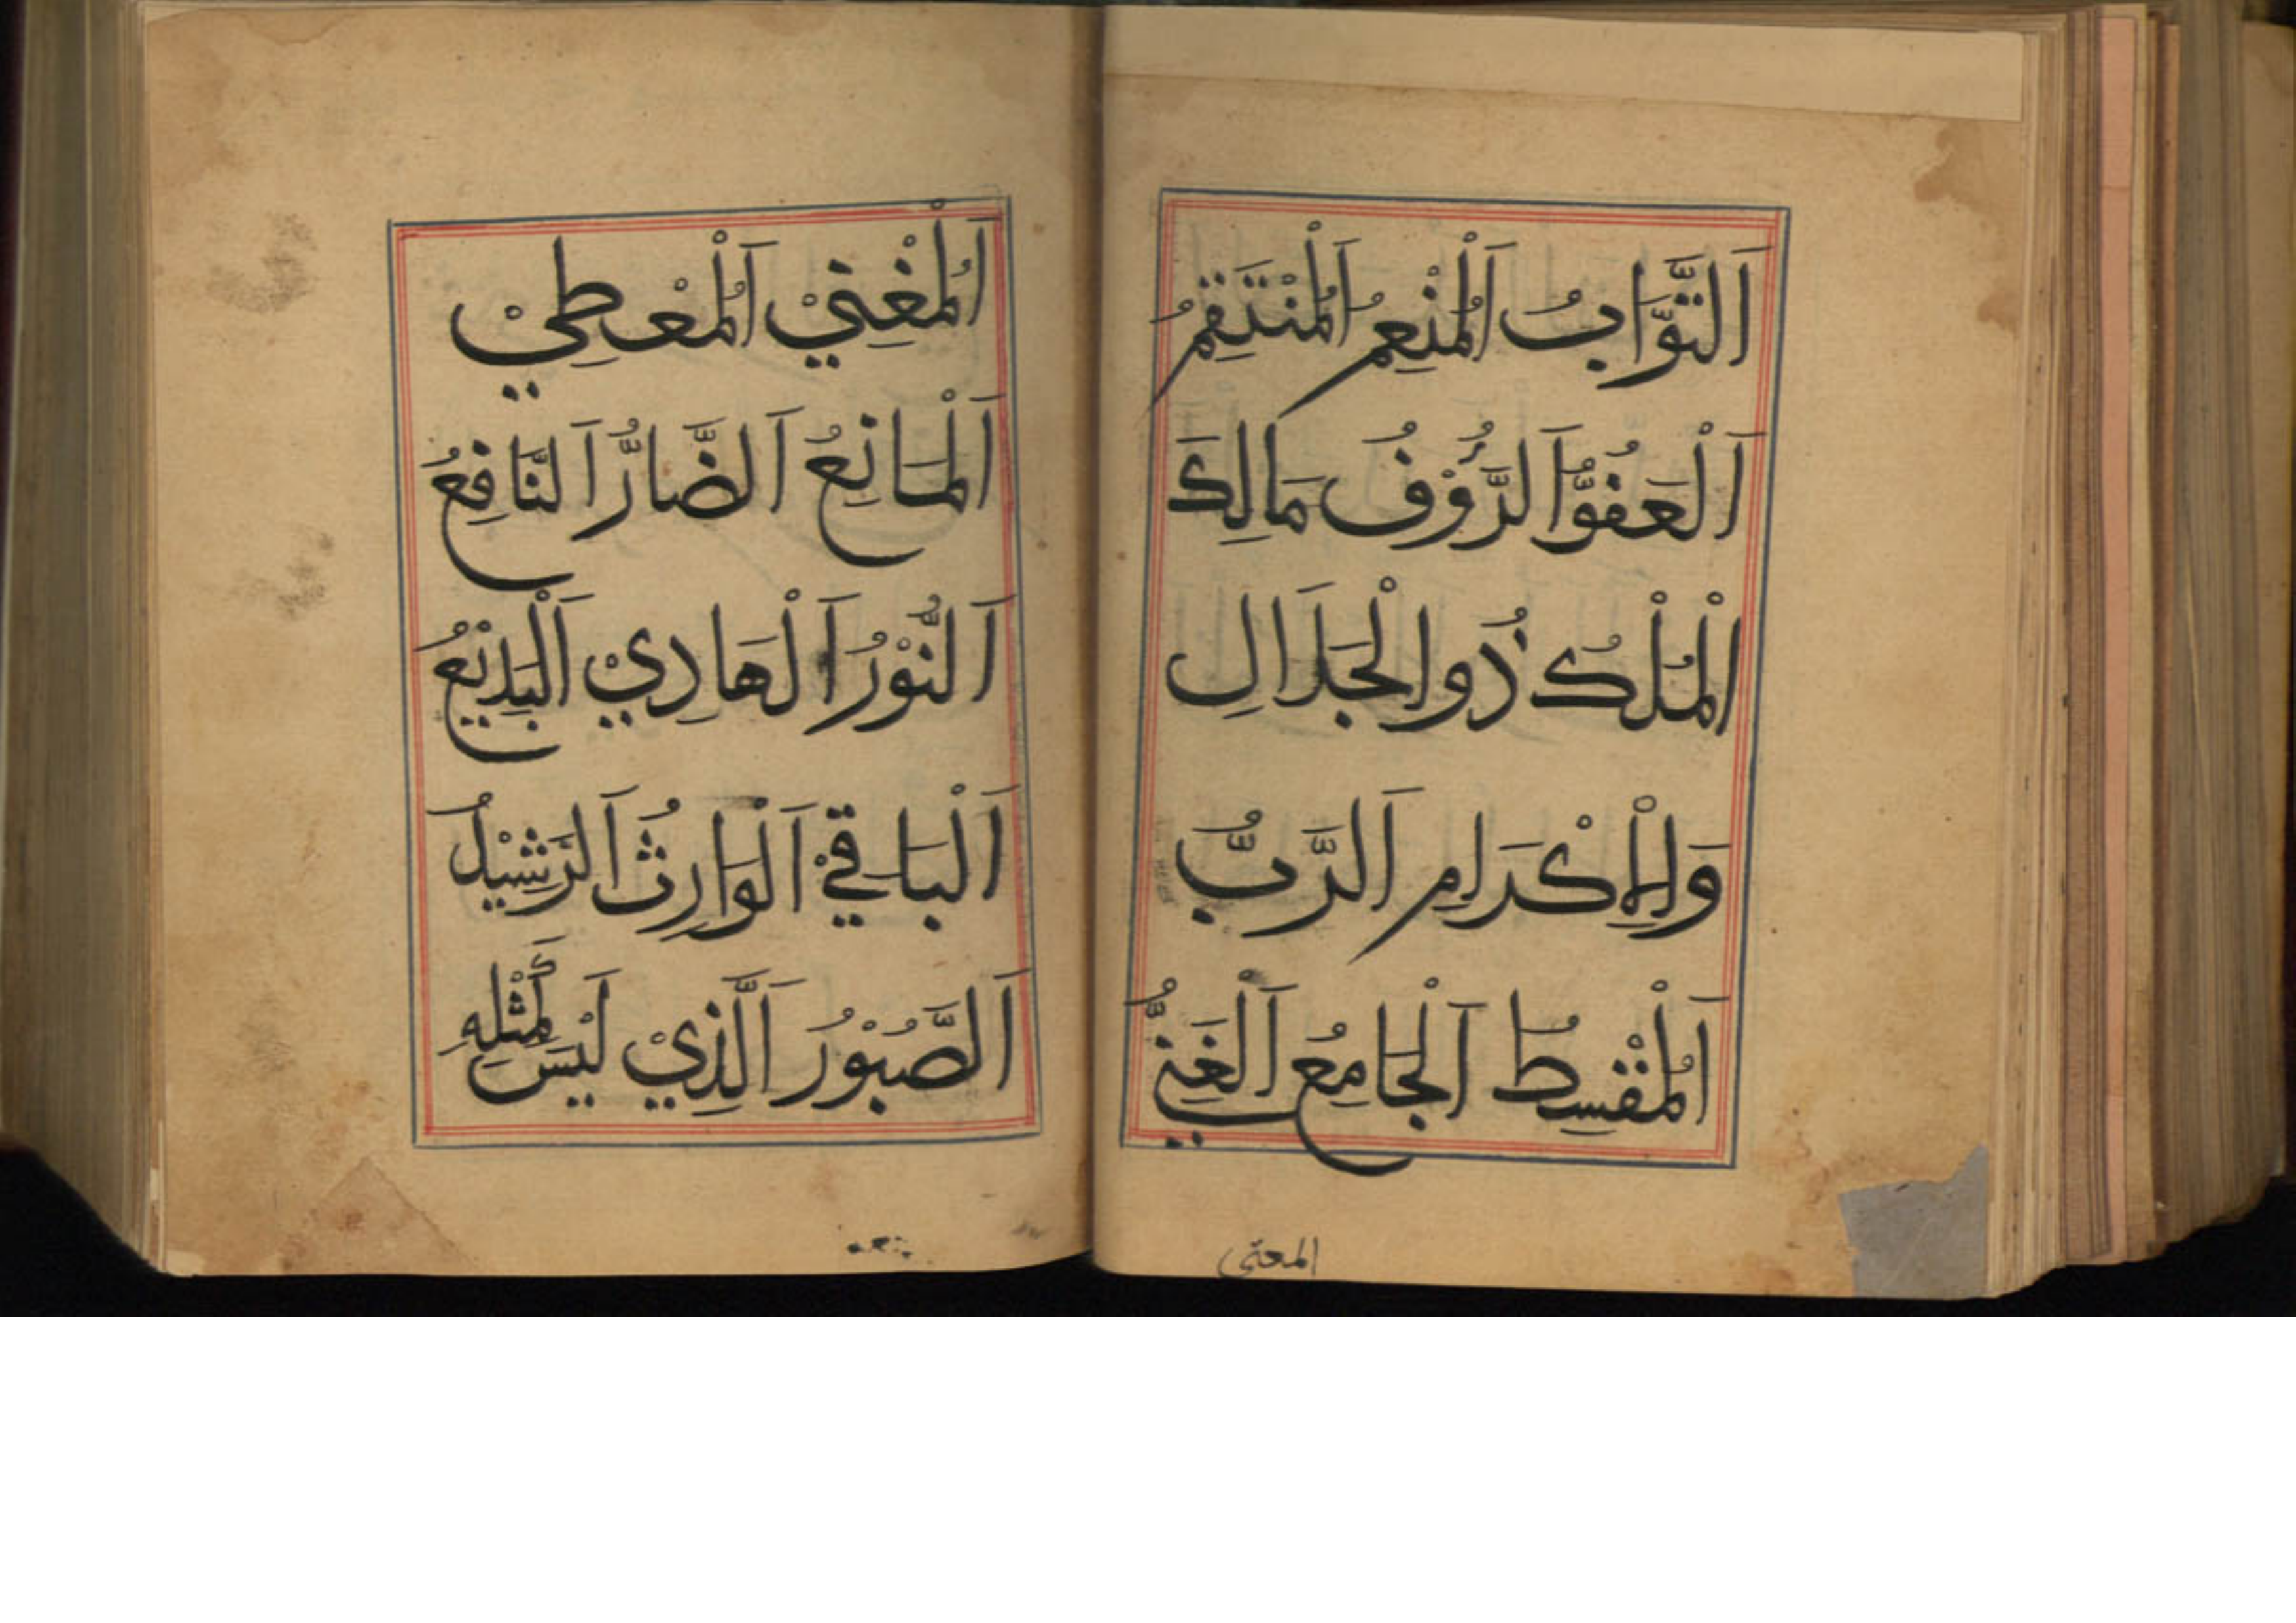 اَلتَّوَّابُ اَلْمُنْعِمُ اَلْمُنْتَقِمُ
اَلْعَفُوُّ اَلرَّؤُفُ مَالِكَ
الْمُلْكُ ذُو الْجَلَالِ
وَالْاِكْرَامِ اَلرَّبُّ
اَلْمُقْسِطُ اَلْجَامِعُ اَلْغَنِيُّ
اَلْمُغْنِيْ اَلْمُعْطِيْ
اَلْمَانِعُ اَلضَّارُّ اَلنَّافِعُ
اَلنُّوْرُ اَلْهَادِيْ اَلْبَدِيْعُ
اَلْبَاقِيْ اَلْوَارِثُ اَلرَّشِيْدُ
اَلصَّبُوْرُ اَلَّذِيْ لَيْسَ كَمِثْلِهِ